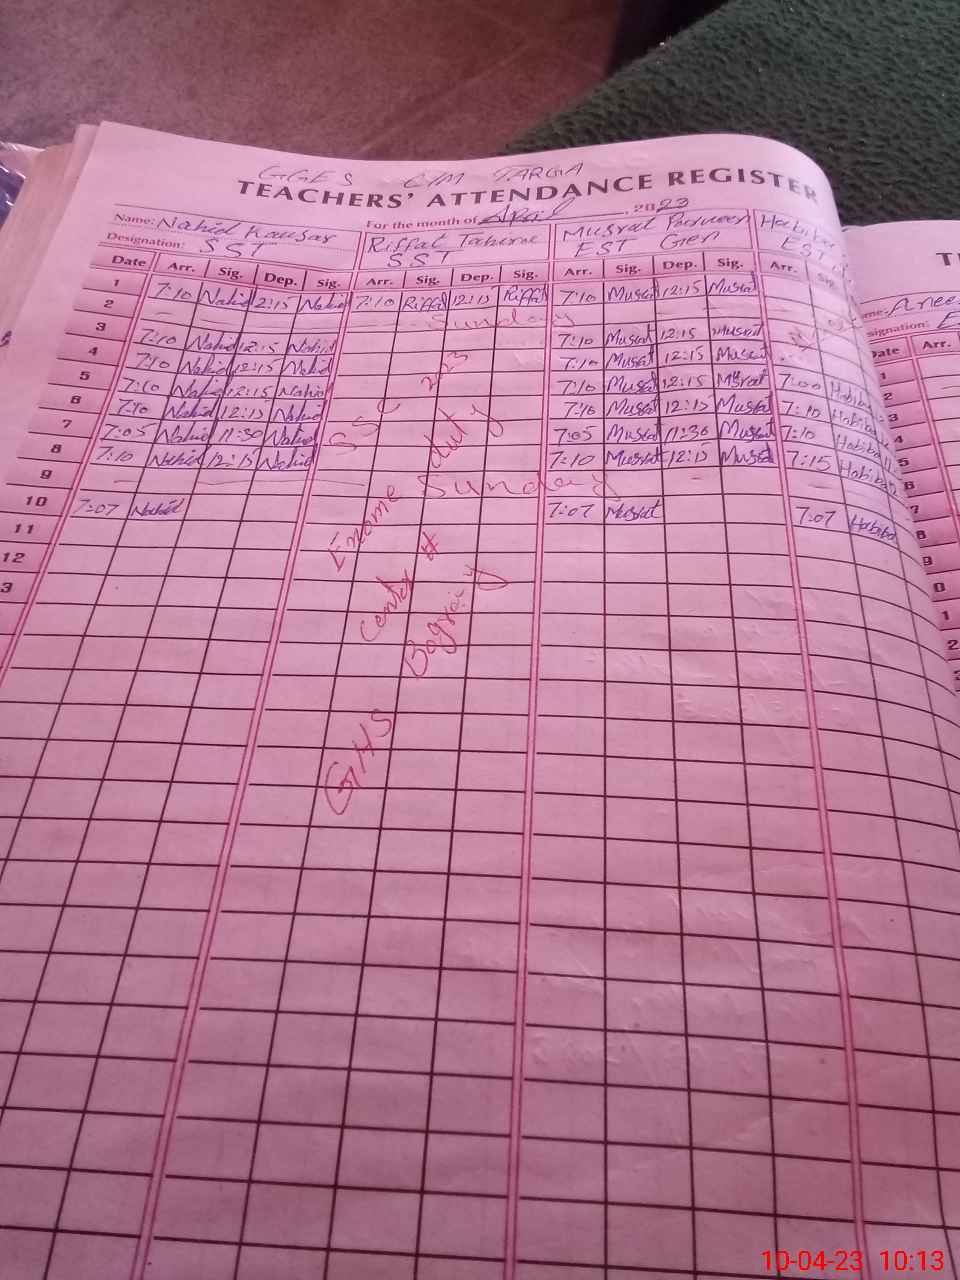 GGES C/M TARGA
TEACHERS' ATTENDANCE REGISTER
For the month of April, 2023
Name: Nahid Kausar Riffat Musrat Parveen Habiba
Designation: SST SST EST Gen EST
Date Arr. Sig. Dep. Sig. Arr. Sig. Dep. Sig. Arr. Sig. Dep. Sig. Arr. Sig.
1 7:10 Nahid 12:15 Nahid 7:10 Riffat 12:15 Riffat 7:10 Musrat 12:15 Musrat
2 Sunday
3 7:10 Nahid 12:15 Nahid 7:10 Musrat 12:15 Musrat
4 7:10 Nahid 12:15 Nahid 7:10 Musrat 12:15 Musrat
5 7:10 Nahid 12:15 Nahid 7:10 Musrat 12:15 Musrat 7:00 Habiba
6 7:10 Nahid 12:15 Nahid 7:10 Musrat 12:15 Musrat 7:10 Habiba
7 7:05 Nahid 11:30 Nahid 7:05 Musrat 11:30 Musrat 7:10 Habiba
8 7:10 Nahid 12:15 Nahid 7:10 Musrat 12:15 Musrat 7:15 Habiba
9 Sunday
10 7:07 Nahid 7:07 Musrat 7:07 Habiba
11
12
3
SSC 2023
Exame duty
Center #
GHS
Date Arr.
1
2
3
4
5
6
7
8
9
0
1
2
10-04-23 10:13